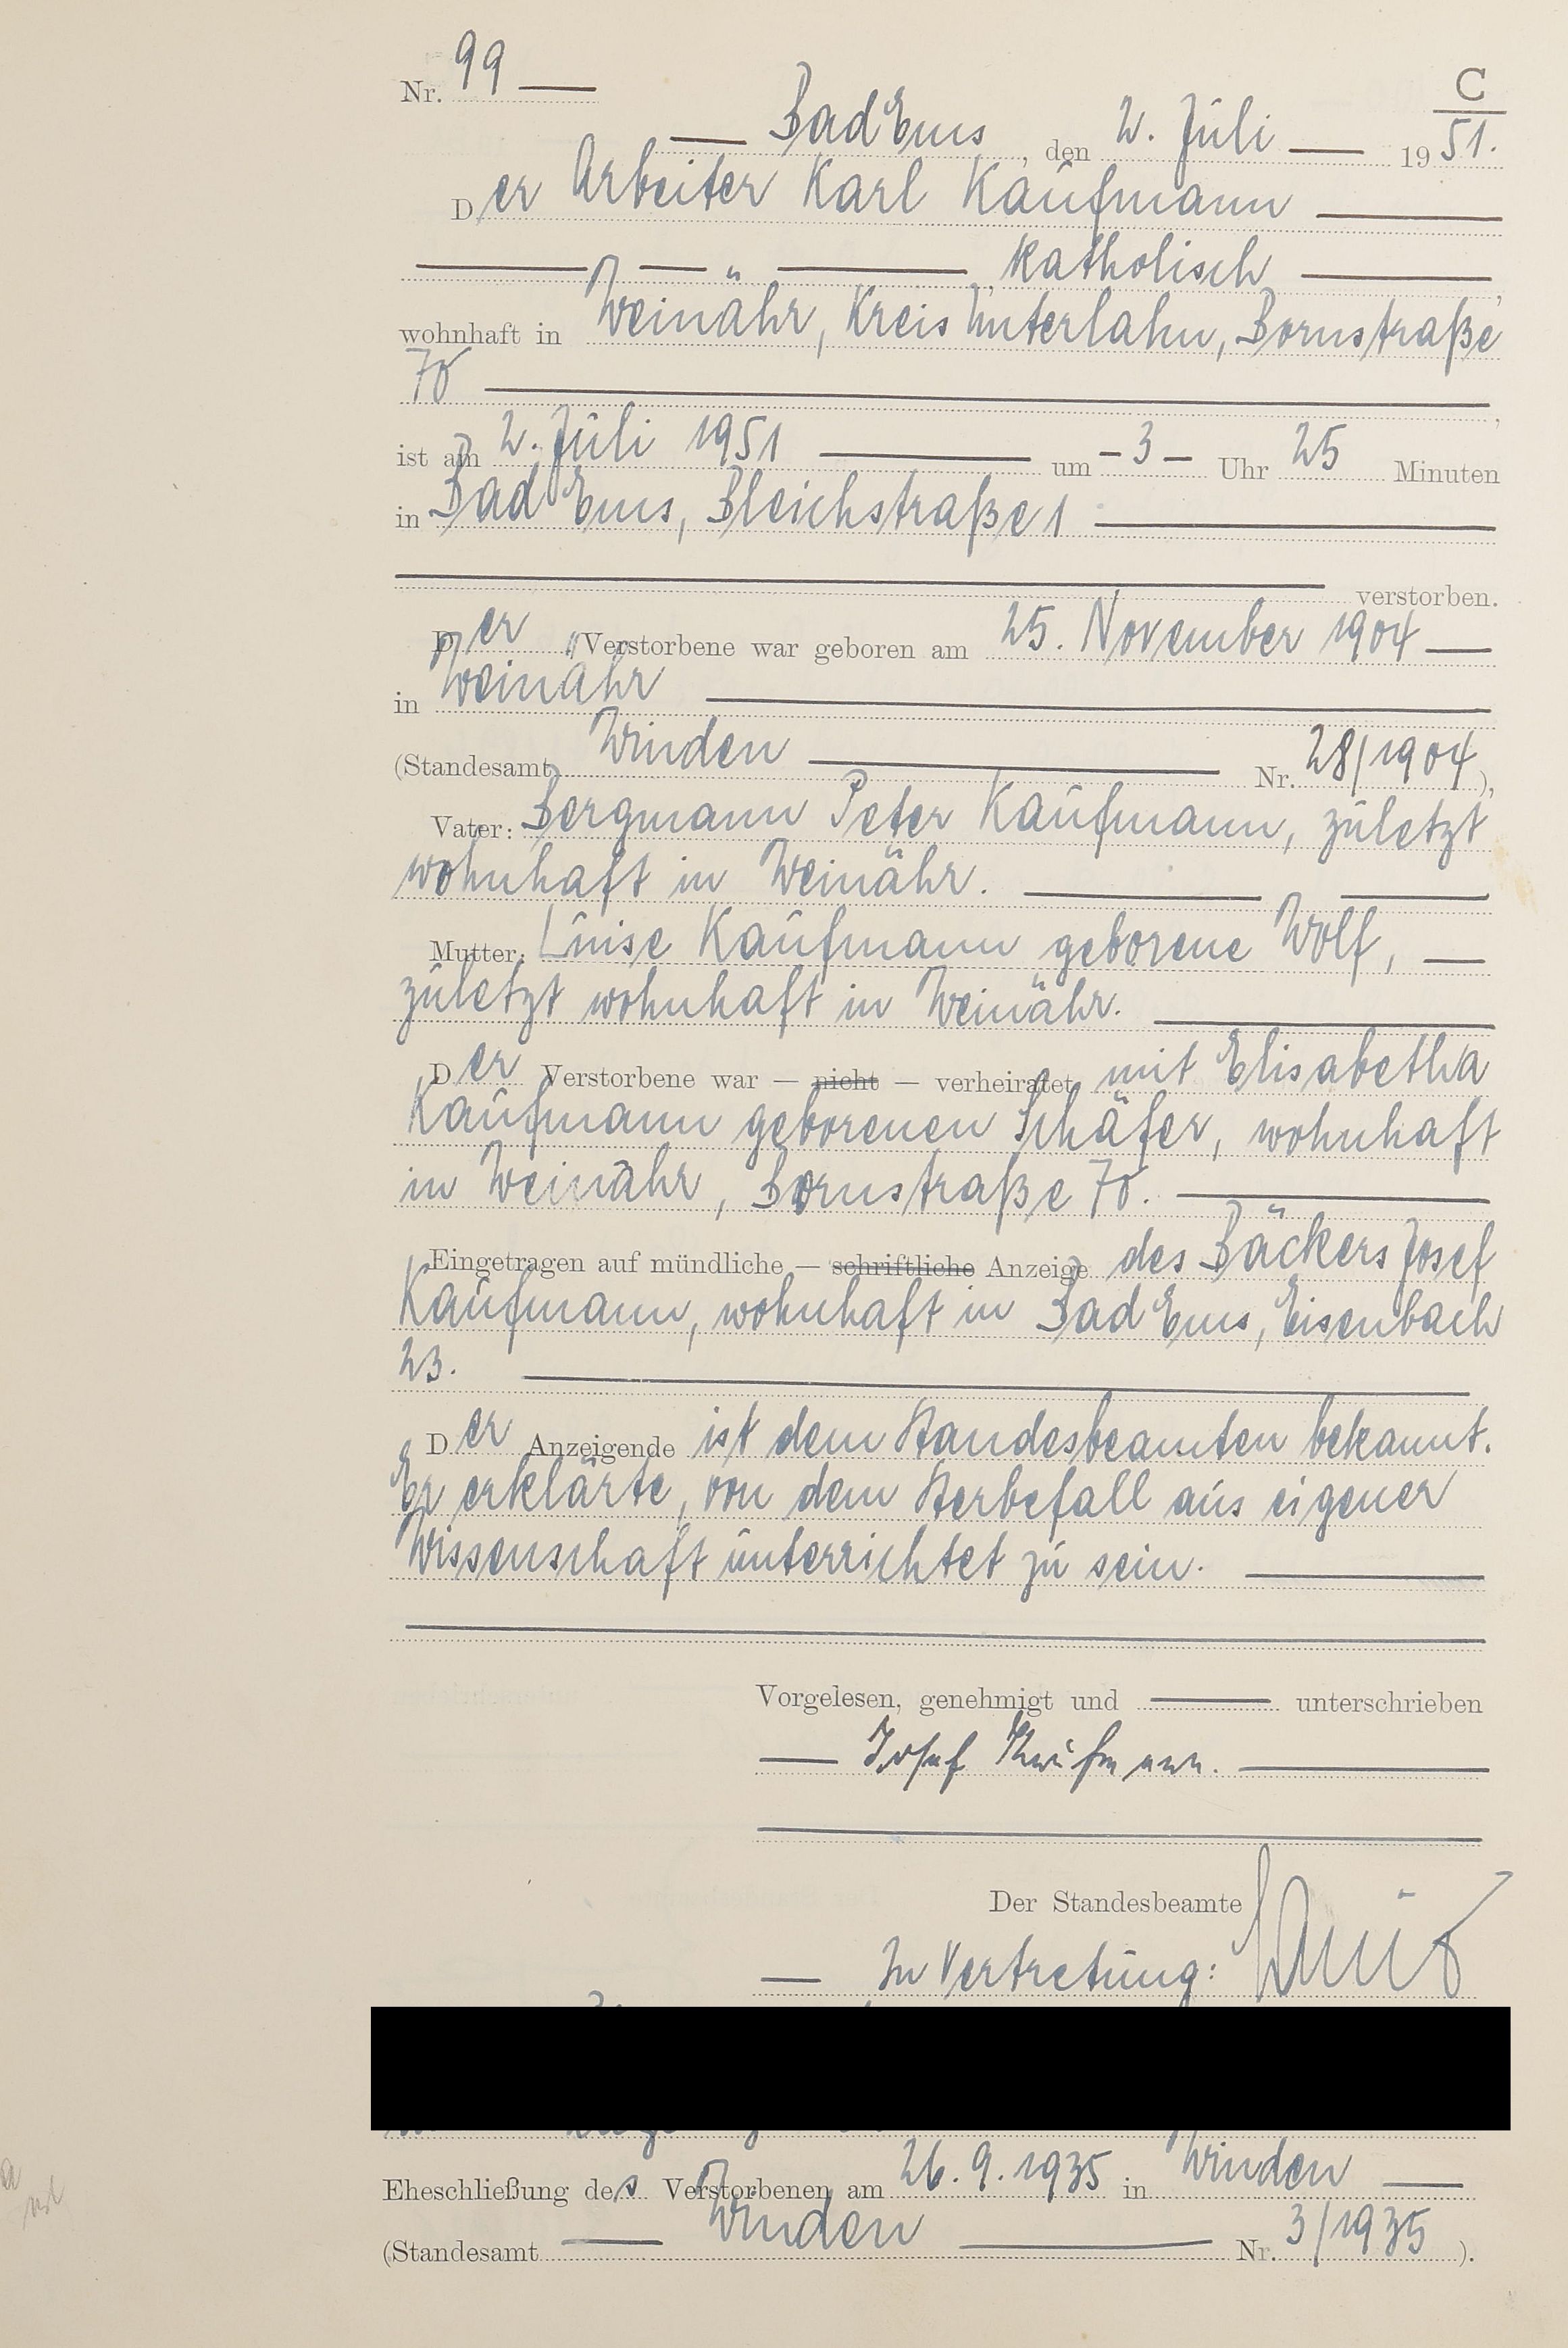 Nr. 99
C
Bad Ems, den 2. Juli 1951.
Der Arbeiter Karl Kaufmann
katholisch,
wohnhaft in Weinähr, Kreis Unterlahn, Bornstraße
70,
ist am 2. Juli 1951 um - 3 - Uhr 25 Minuten
in Bad Ems, Bleichstraße 1
verstorben.
Der Verstorbene war geboren am 25. November 1904
in Weinähr
(Standesamt Winden Nr. 28/1904),
Vater: Bergmann Peter Kaufmann, zuletzt
wohnhaft in Weinähr.
Mutter: Luise Kaufmann geborene Wolf,
zuletzt wohnhaft in Weinähr.
Der Verstorbene war — nicht — verheiratet mit Elisabetha
Kaufmann geborenen Schäfer, wohnhaft
in Weinähr, Bornstraße 70.
Eingetragen auf mündliche — schriftliche Anzeige des Bäckers Josef
Kaufmann, wohnhaft in Bad Ems, Eisenbach
23.
Der Anzeigende ist dem Standesbeamten bekannt.
Er erklärte, von dem Sterbefall aus eigener
Wissenschaft unterrichtet zu sein.
Vorgelesen, genehmigt und unterschrieben
Josef Kaufmann.
Der Standesbeamte
In Vertretung:
Eheschließung des Verstorbenen am 26.9.1935 in Winden
(Standesamt Winden Nr. 3/1935).